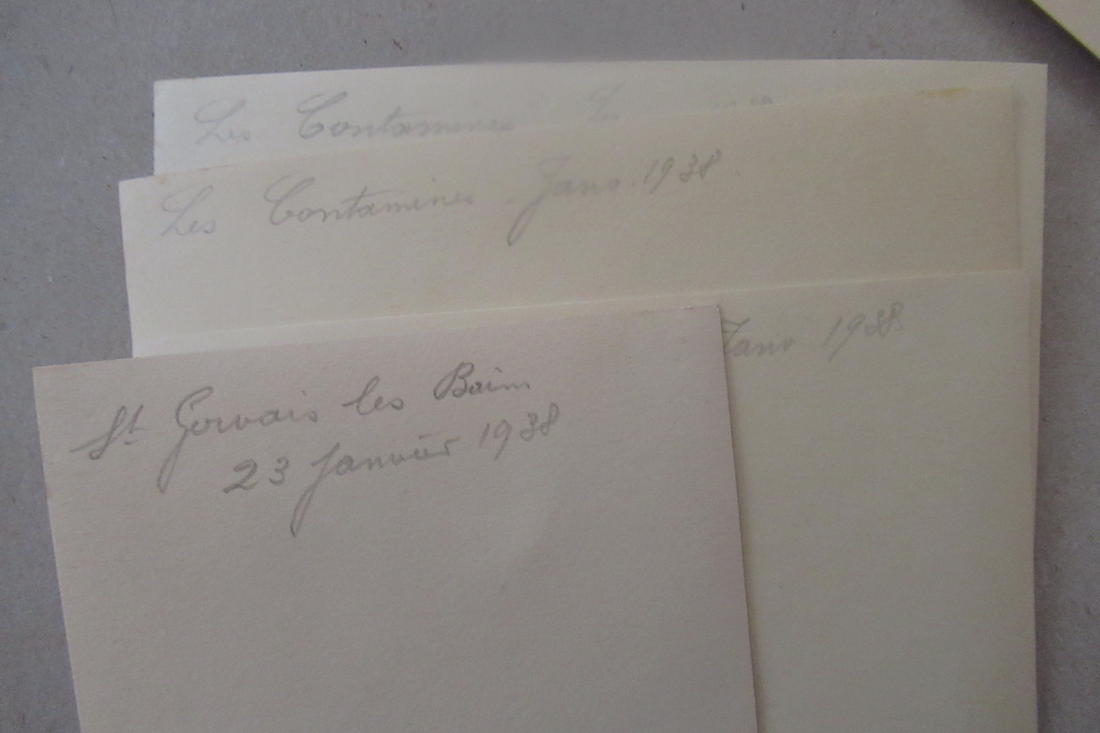 Les Contamines
Les Contamines - Janv. 1938
Janv 1938
St Gervais les Bains
23 Janvier 1938